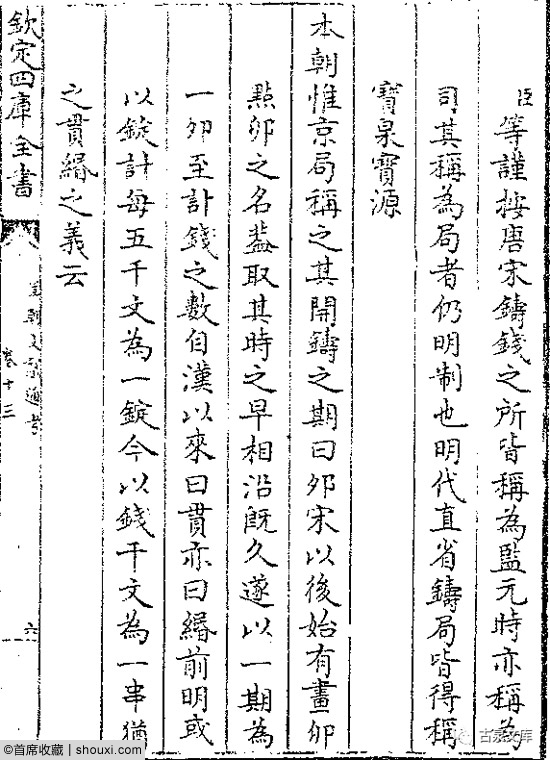 臣等謹按唐宋鑄錢之所皆稱為監元時亦稱為
司其稱為局者仍明制也明代直省鑄局皆得稱
寶泉寶源
本朝惟京局稱之其開鑄之期曰夘宋以後始有畫夘
點夘之名葢取其時之早相沿既久遂以一期為
一夘至計錢之數自漢以來曰貫亦曰緡前明或
以錠計每五千文為一錠今以錢千文為一串猶
之貫緡之義云
欽定四庫全書
皇朝文獻通考
卷十三
六
古泉文库
©首席收藏 | shouxi.com